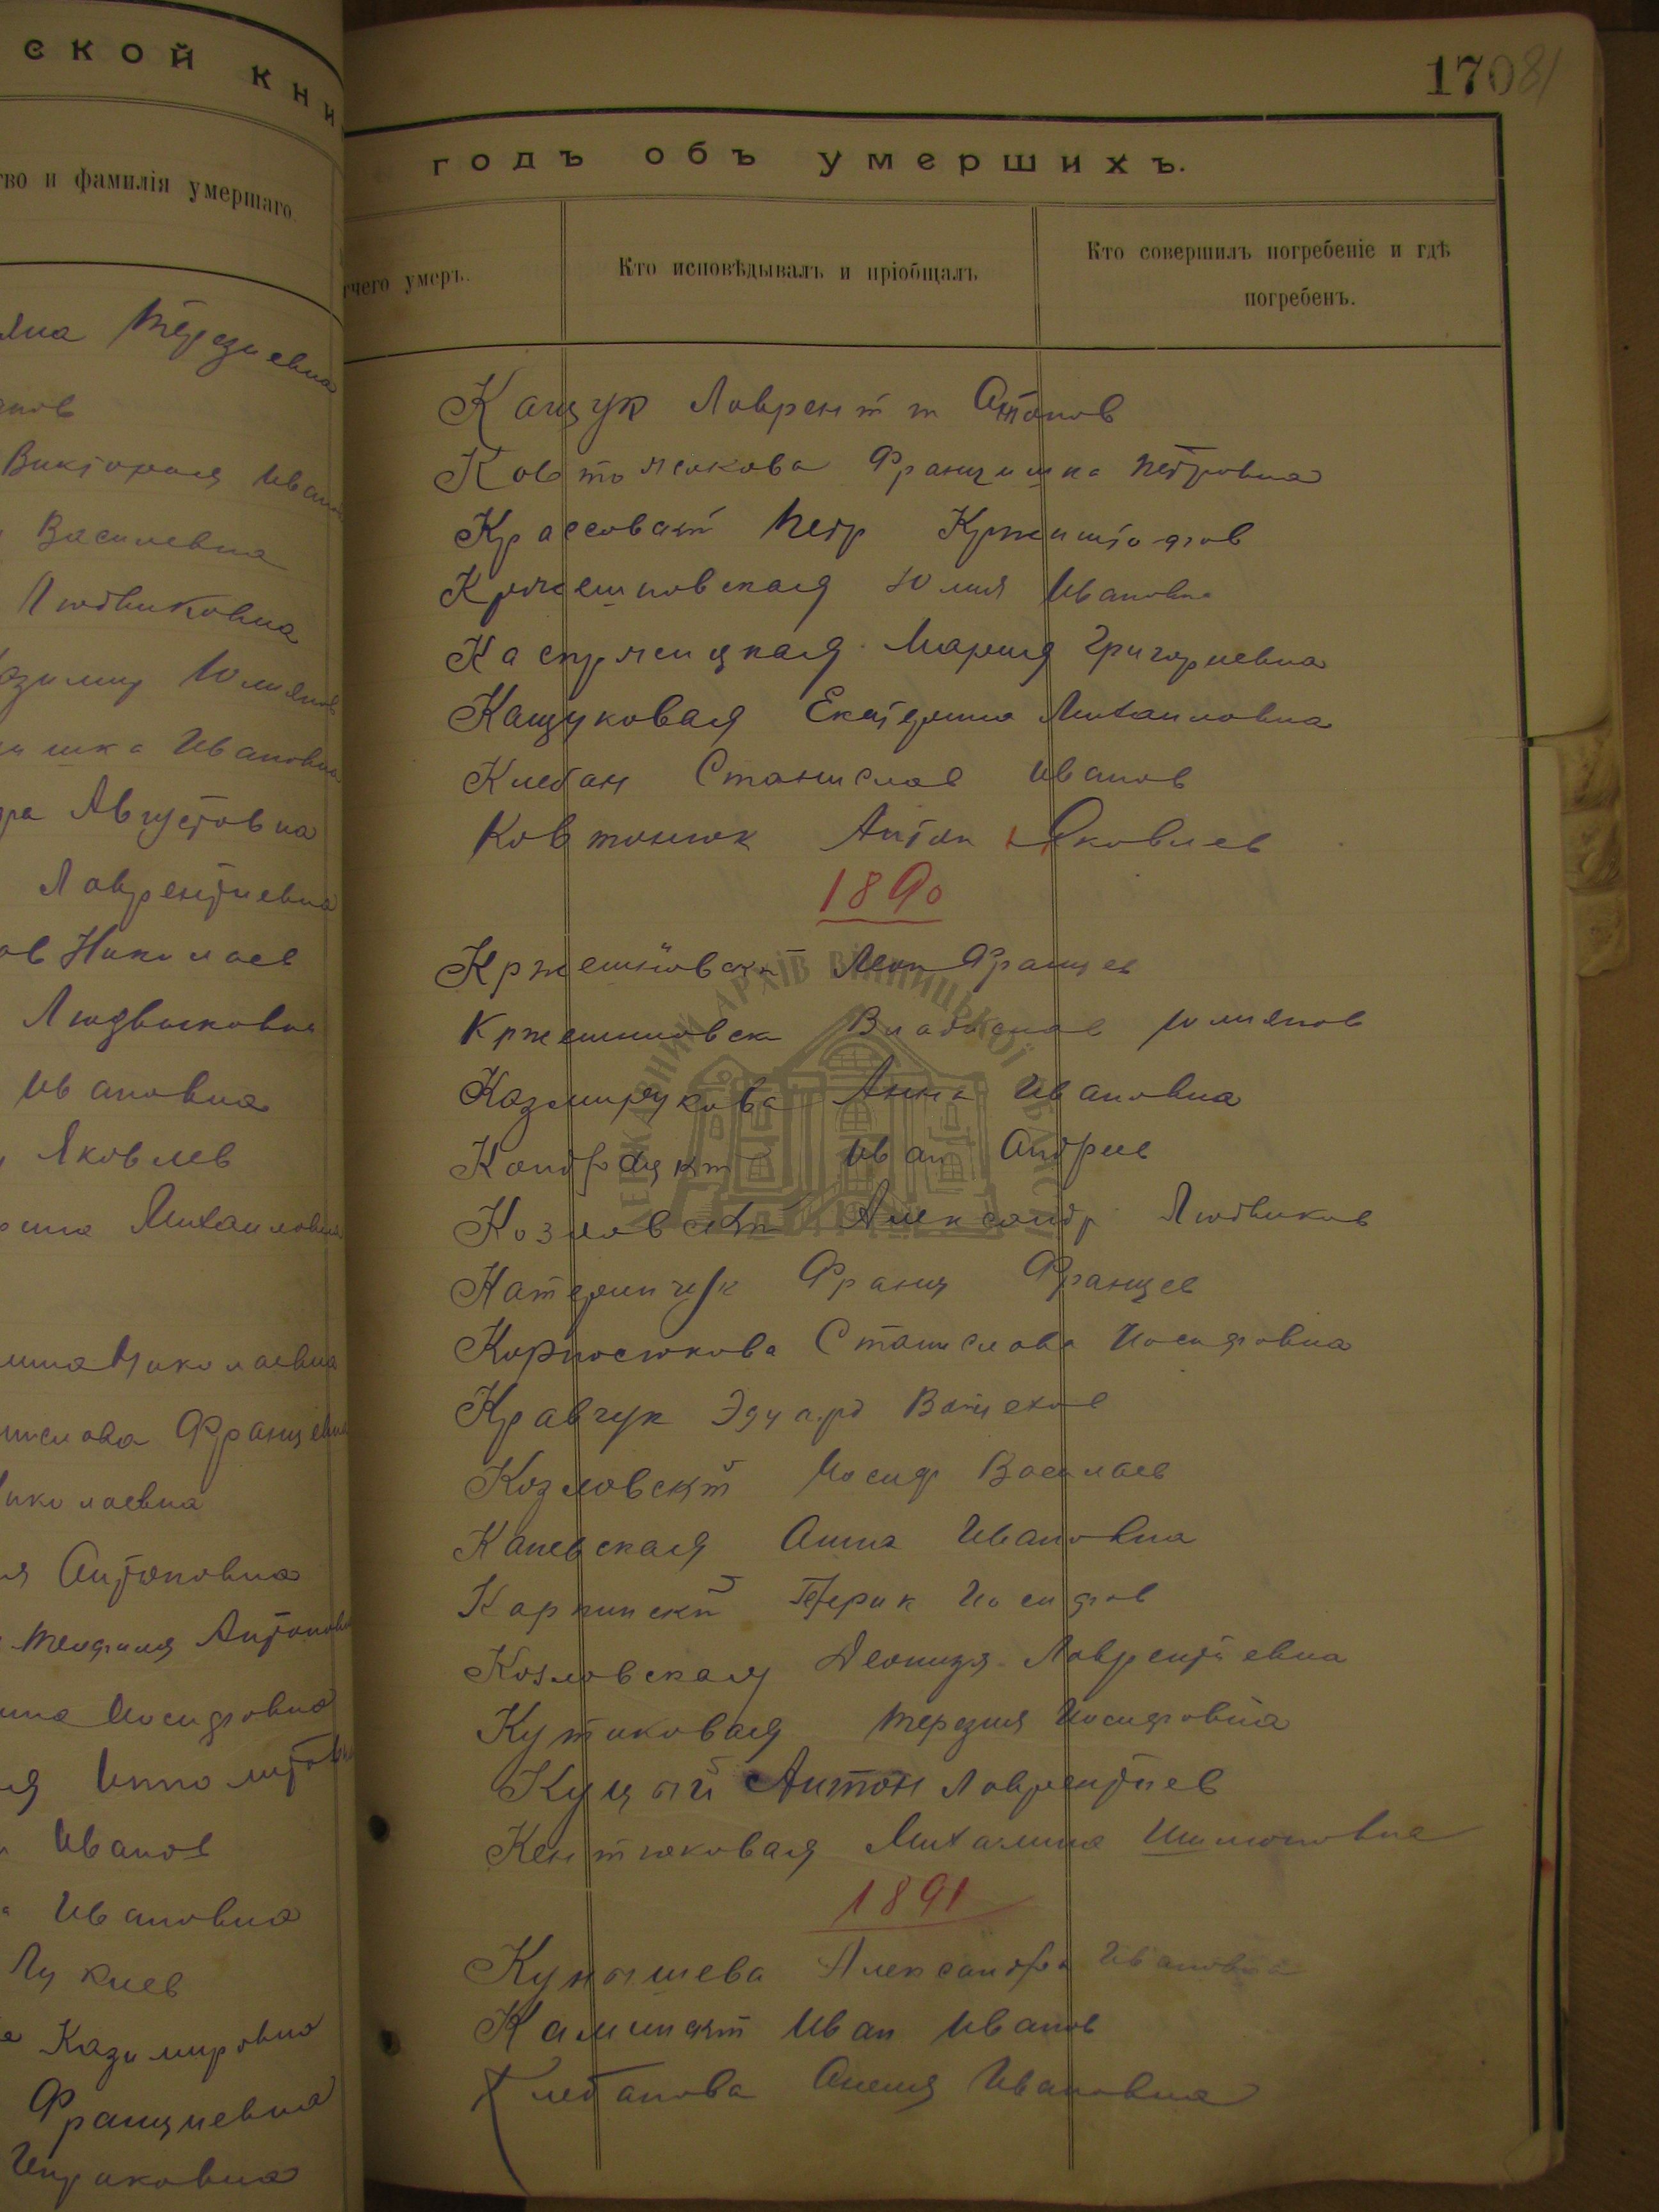 ской кни
тво и фамилія умершаго.
Терезиевна
Виктория Иван
Василевна
Людвиковна
Юлиянов
шка Ивановна
ра Августовна
Лаврентиевна
ов Николаев
Людвиковна
Ивановна
Яковлев
Михаиловна
Николаевна
Францевна
Николаевна
Антоновна
Теофиля Антонов
Иосифовна
Ипполитовн
Иванов
Ивановна
Лукиев
Казимировна
Францишевна
170 81
годъ объ умершихъ.
тчего умеръ.
Кто исповѣдывалъ и пріобщалъ
Кто совершилъ погребеніе и гдѣ
погребенъ.
Кащук Лаврентт Антонов
Ковтонюкова Францишка Петровна
Петр Кржиштофов
Юлия Ивановна
Мария Григориевна
Кащуковая Екатерина Михаиловна
Клебан Станислав Иванов
Ковтонюк Антон Яковлев
1890
Кржешновски Леон Францев
Кржешновски Владислав Юлиянов
Казмирукова Анна Ивановна
Иван Андреев
Козловски Александр Людвиков
Катеринчук Франц Францев
Корнюсюкова Станислава Иосифовна
Кравчук Эдуард Войцехов
Козловскій Иосиф Василаев
Каневская Анна Ивановна
Карпинскій Иосифов
Козловская Леониця Лаврентиевна
Кутиковая Терезия Иосифовна
Куцый Антон Лаврентиев
Кентюковая Михалина Шимоновна
1891
Кунышева Александра Ивановна
Иван Иванов
Клебанова Анеля Ивановна
ДЕРЖАВНИЙ АРХІВ ВІННИЦЬКОЇ ОБЛАСТІ